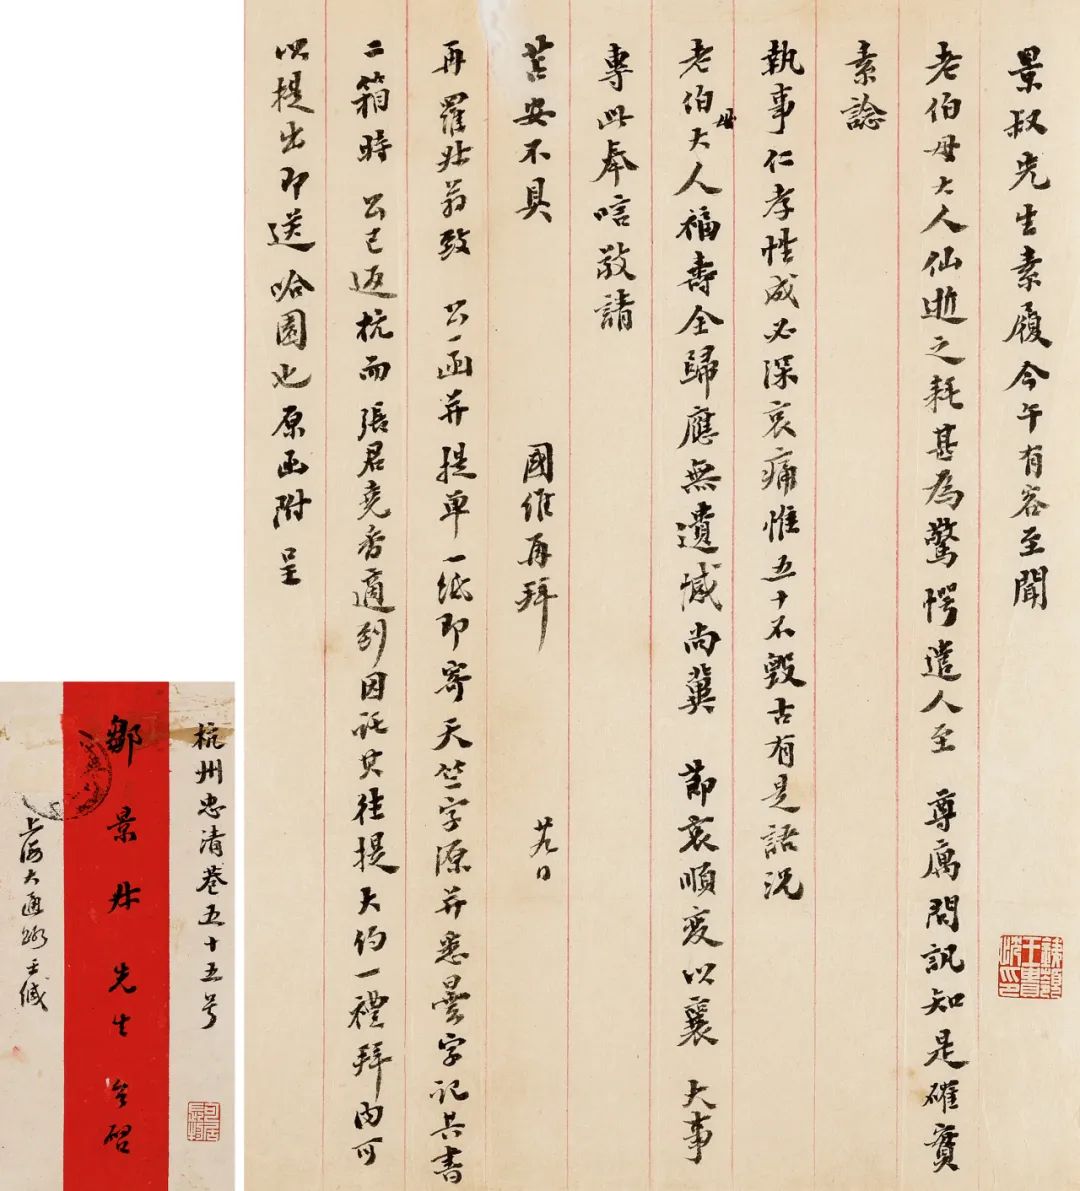 景叔先生素履今午有客至聞
老伯母大人仙逝之耗甚為驚愕遣人至 尊属問訊知是確實
素諗
執事仁孝性成必深哀痛惟五十不毀古有是語況
老伯母大人福壽全歸應無遺憾尚冀 節哀順变以襄 大事
專此奉唁敬請
苫安不具 國維再拜 廿九日
再 羅叔翁致 公一函并提單一纸即寄天竺字源并悉曇字記共書
二箱時 公已返杭而張君堯香適到因託其往提大約一禮拜內可
以提出即送哈園也原函附呈
杭州忠清巷五十五号
鄒景叔先生台啓
上海大通路王缄